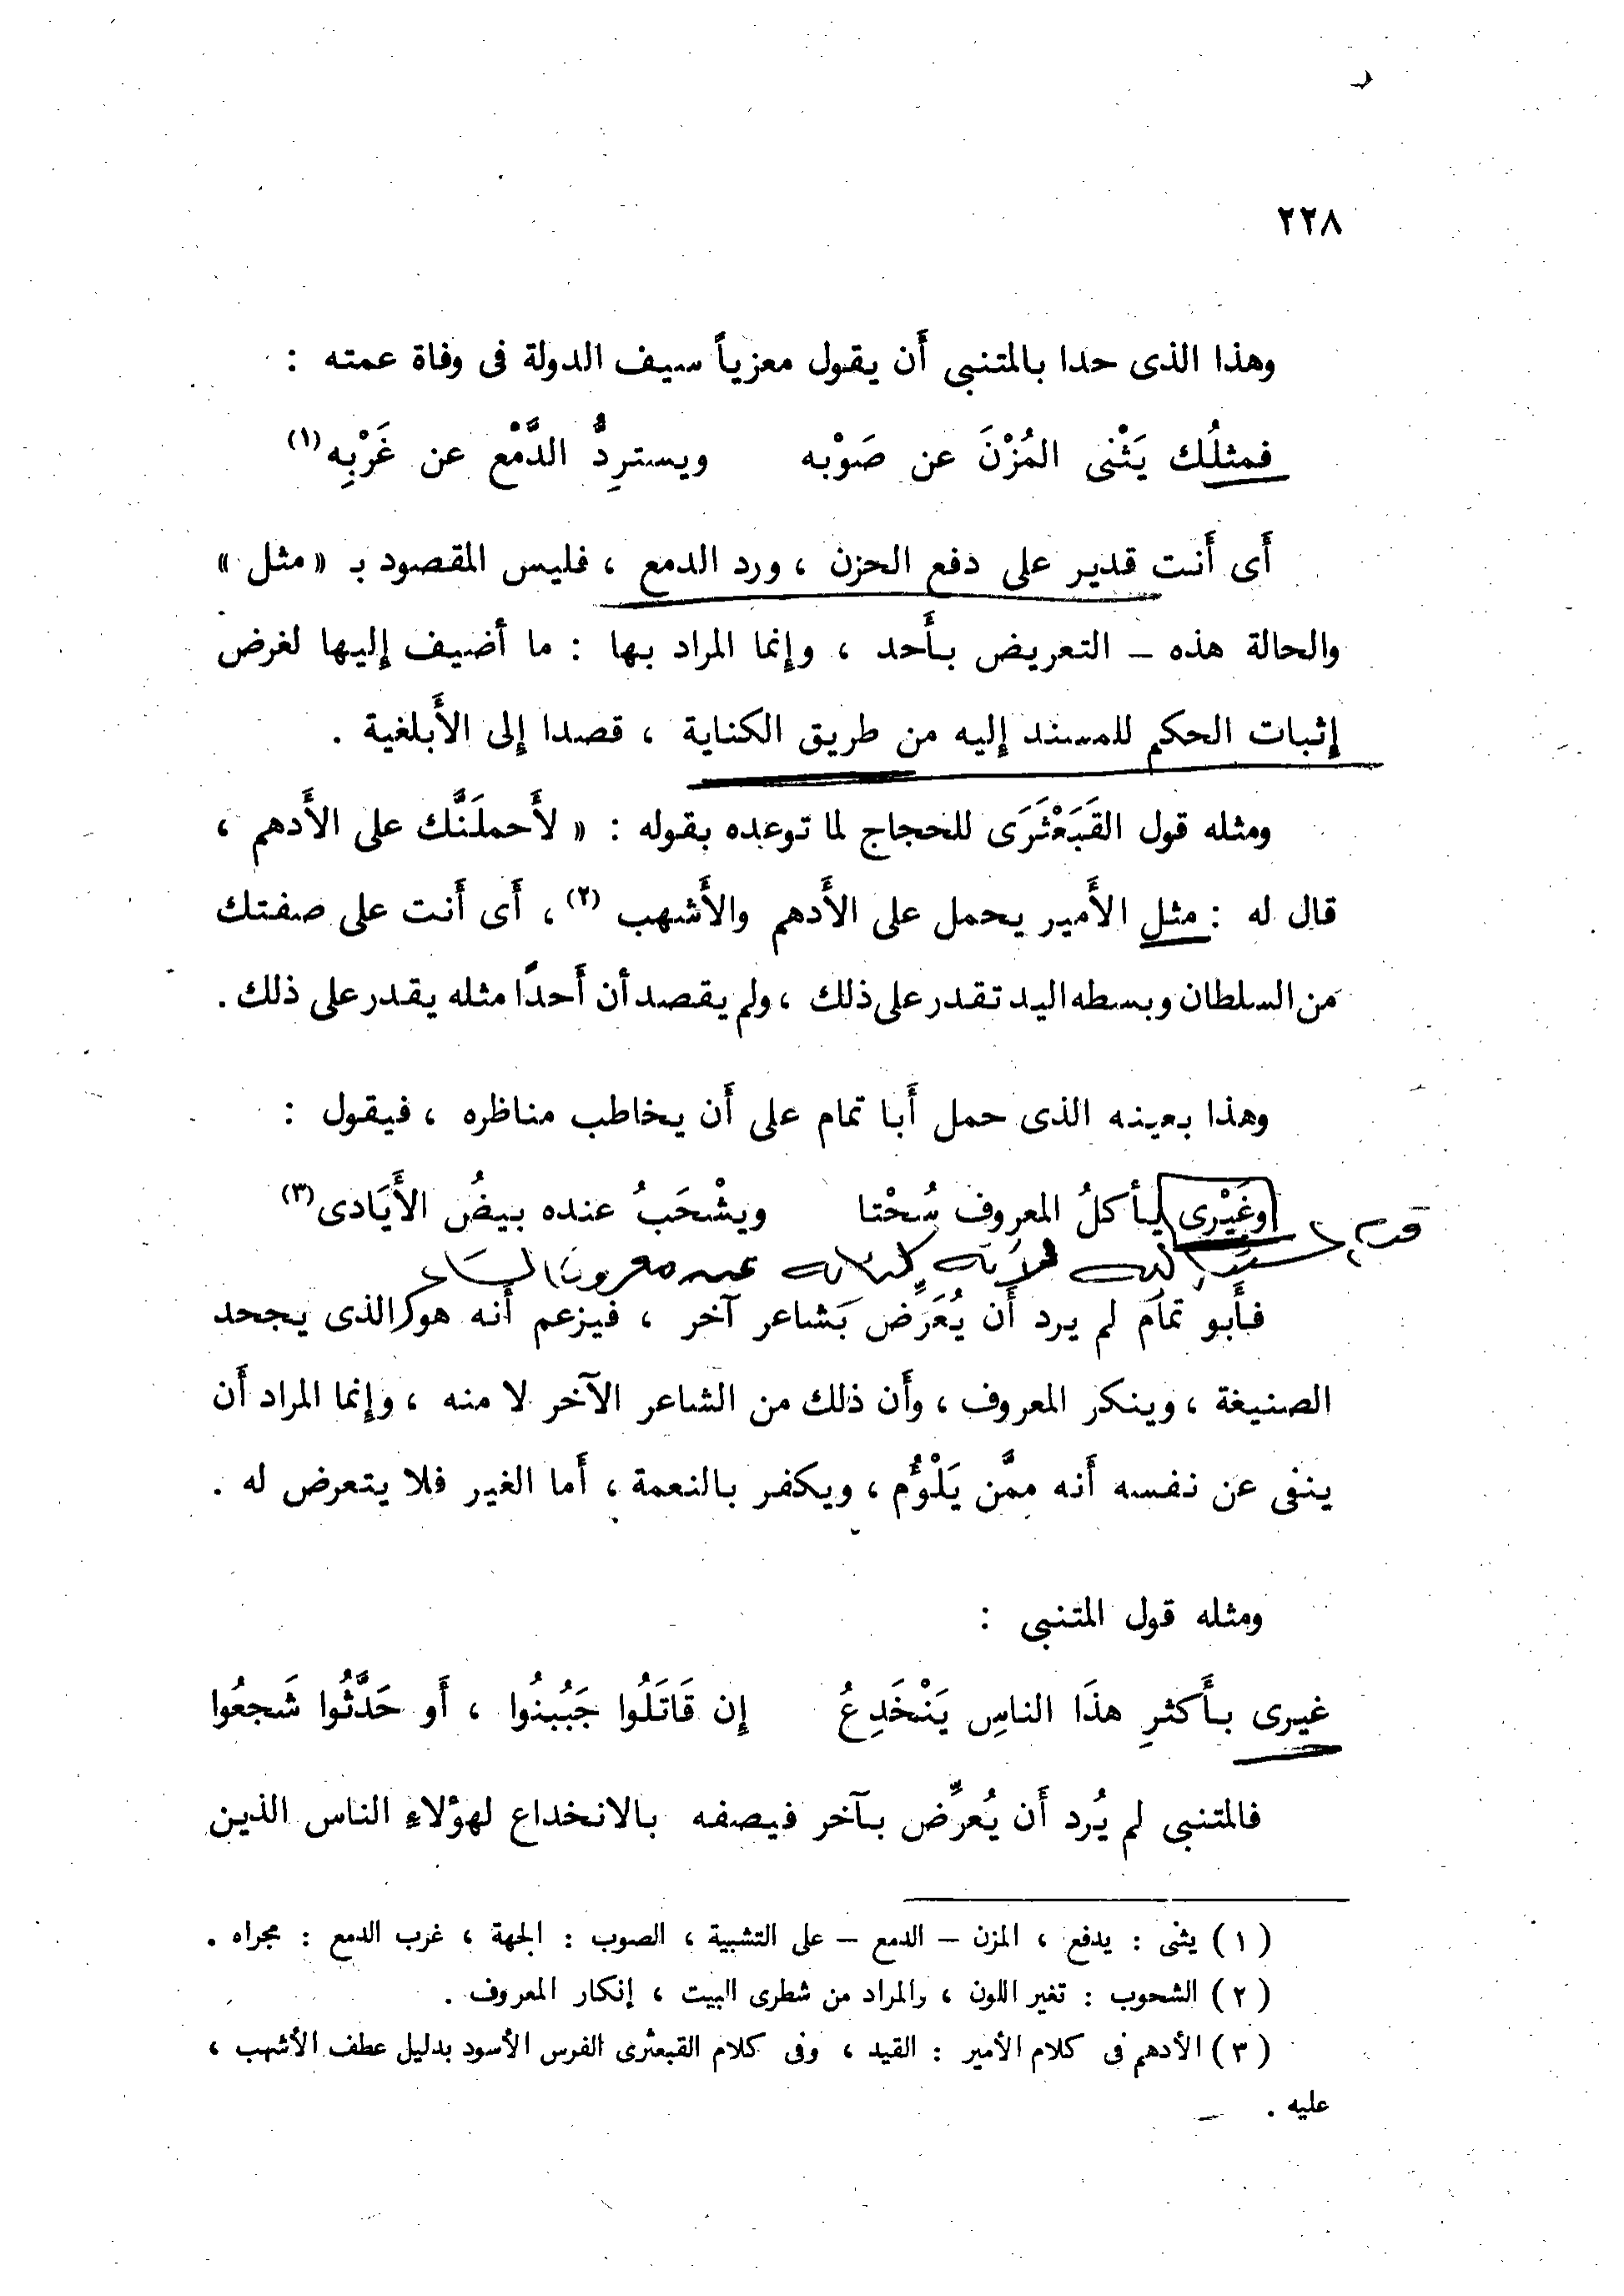 ٢٢٨
وهذا الذى حدا بالمتنبى أَن يقول معزياً سيف الدولة فى وفاة عمته :
فمثلُك يَثْنى المُزْنَ عن صَوْبه ويستردُّ الدَّمْع عن غَرْبِه (١)
أَى أَنت قدير على دفع الحزن ، ورد الدمع ، فليس المقصود بـ « مثل »
والحالة هذه – التعريض بأَحد ، وإنما المراد بها : ما أضيف إليها لغرض
إثبات الحكم للمسند إليه من طريق الكناية ، قصدا إلى الأَبلغية .
ومثله قول القَبَعْثَرَى للحجاج لما توعده بقوله : « لأَحملَنَّك على الأَدهم ،
قال له : مثل الأَمير يحمل على الأَدهم والأَشهب (٢) ، أَى أَنت على صفتك
من السلطان وبسطه اليد تقدر على ذلك ، ولم يقصد أن أَحدًا مثله يقدر على ذلك .
وهذا بعينه الذى حمل أَبا تمام على أَن يخاطب مناظره ، فيقول :
وغَيْرى يأكلُ المعروف سُحْتا ويشْحَبُ عنده بيضُ الأَيَادى (٣)
فأَبو تمام لم يرد أَن يُعَرَض بَشاعر آخر ، فيزعم أَنه هو الذى يجحد
الصنيغة ، وينكر المعروف ، وأَن ذلك من الشاعر الآخر لا منه ، وإنما المراد أَن
ينفى عن نفسه أَنه ممَّن يَلْؤُم ، ويكفر بالنعمة ، أَما الغير فلا يتعرض له .
ومثله قول المتنبى :
غيرى بأَكثرِ هذَا الناسِ يَنْخَدِعُ إن قَاتَلُوا جَبُبنُوا ، أَو حَدَّثُوا شَجعُوا
فالمتنبى لم يُرد أَن يُعرِّض بآخر فيصفه بالانخداع لهؤلاءِ الناس الذين
( ١ ) يثنى : يدفع ، المزن – الدمع – على التشبية ، الصوب : الجهة ، غرب الدمع : مجراه .
( ٢ ) الشحوب : تغير اللون ، والمراد من شطرى البيت ، إنكار المعروف .
( ٣ ) الأدهم فى كلام الأمير : القيد ، وفى كلام القبعثرى الفرس الأسود بدليل عطف الأشهب ،
عليه .